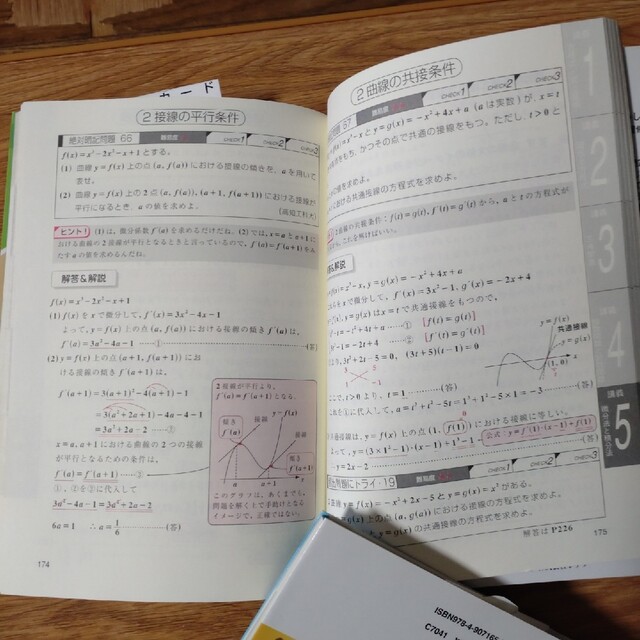 カード
2接線の平行条件
絶対暗記問題 66 難易度 CHECK1 CHECK2 CHECK3
f(x)=x³-2x²-x+1とする。
(1) 曲線y=f(x)上の点(a, f(a))における接線の傾きを、aを用いて
表せ。
(2) 曲線y=f(x)上の2点(a, f(a)), (a+1, f(a+1))における接線が
平行になるとき、aの値を求めよ。 (高知工科大)
ヒント! (1)は、微分係数f′(a)を求めるだけだね。(2)では、x=aとa+1に
おける曲線の2接線が平行となるときと言っているので、f′(a)=f′(a+1)をみ
たすaの値を求めるんだね。
解答&解説
f(x)=x³-2x²-x+1
(1) f(x)をxで微分して、f′(x)=3x²-4x-1
よって、y=f(x)上の点(a, f(a))における接線の傾きf′(a)は、
f′(a)=3a²-4a-1 ……① ……(答)
(2) y=f(x)上の点(a+1, f(a+1))にお
ける接線の傾きf′(a+1)は、
f′(a+1)=3(a+1)²-4(a+1)-1
=3(a²+2a+1)-4a-4-1
=3a²+2a-2 ……②
x=a, a+1における曲線の2つの接線
が平行となるための条件は、
f′(a)=f′(a+1) ……③
①、②を③に代入して
3a²-4a-1=3a²+2a-2
6a=1 ∴a=1/6 ……(答)
2接線が平行より、
f′(a)=f′(a+1)となる。
傾き
f′(a)
接線
y=f(x)
接線
傾き
f′(a+1)
a a+1 x
このグラフは、あくまでも、
問題を解く上で手助けとなる
イメージで、正確ではない。
174
2曲線の共接条件
問題 67 難易度 CHECK1 CHECK2 CHECK3
=x³-xとy=g(x)=-x²+4x+a (aは実数)が、x=t
をもち、かつその点で共通の接線をもつ。ただし、t>0と
の値を求めよ。
における共通接線の方程式を求めよ。
2曲線の共接条件:f(t)=g(t), f′(t)=g′(t)から、aとtの方程式が
、これを解けばいい。
&解説
x³-x, y=g(x)=-x²+4x+a
をxで微分して、f′(x)=3x²-1, g′(x)=-2x+4
(x)とy=g(x)はx=tで共通接線をもつので、
t³-t=-t²+4t+a ……① [f(t)=g(t)]
3t²-1=-2t+4 ……② [f′(t)=g′(t)]
より、3t²+2t-5=0, (3t+5)(t-1)=0
y=f(x)
共通接線
(1, 0)
x
y=g(x)
ここで、t>0より、t=1 ……(答)
これを①に代入して、a=t³+t²-5t=1³+1²-5×1=-3 ……(答)
共通接線は、y=f(x)上の点(1, f(1))における接線に等しい。
よって、y=(3×1²-1)(x-1)+1³-1 公式:y=f′(1)・(x-1)+f(1)
y=2x-2 ……(答)
問題にトライ・19 難易度 CHECK1 CHECK2 CHECK3
曲線y=f(x)=-x²+2x-5とy=g(x)=x²がある。
g(x)上の点(a, g(a))における接線の方程式を求めよ。
とy=g(x)の共通接線の方程式を求めよ。
解答はP226
175
1
2
3
4
講義
5
微分法と積分法
C7041